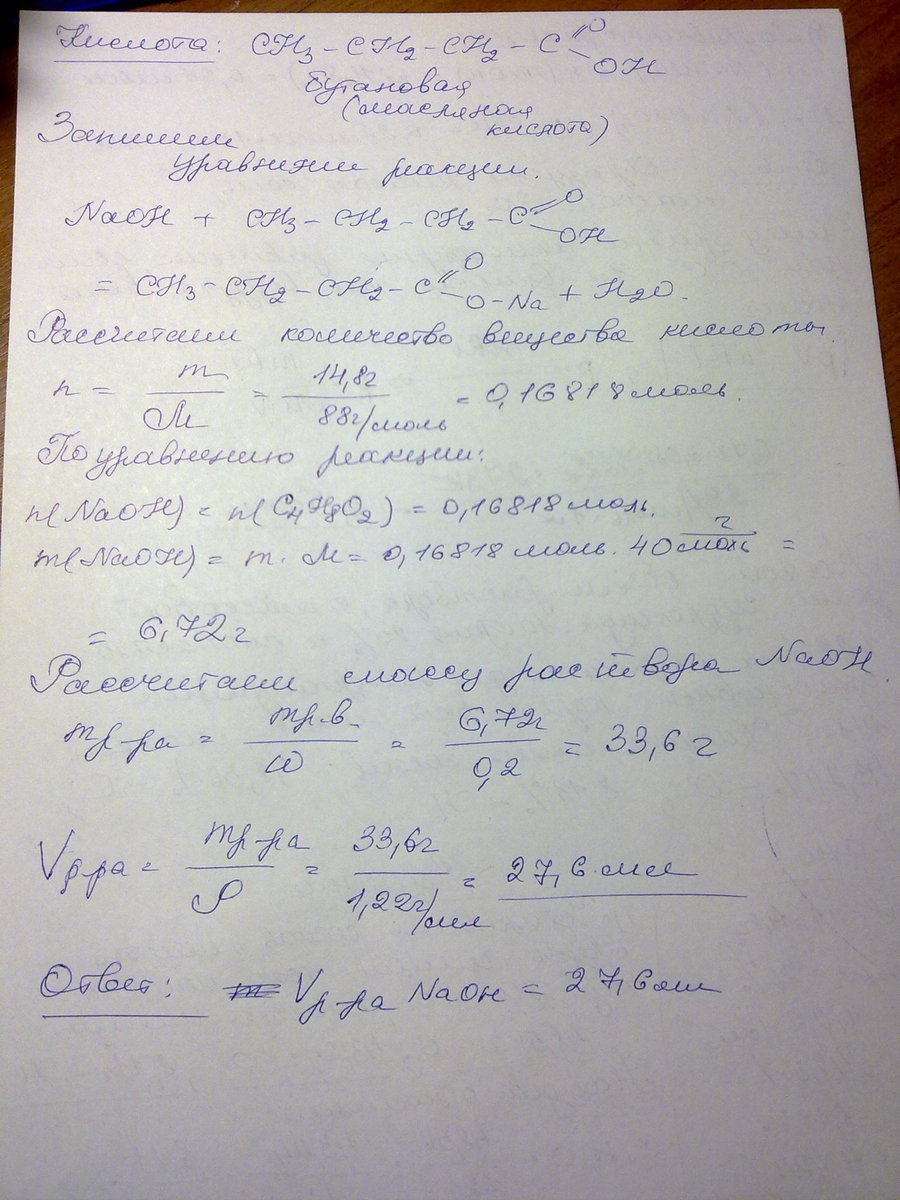 Кислота: CH3 – CH2 – CH2 – C =O OH
бутановая
(масляная кислота)
Запишем
уравнение реакции.
NaOH + CH3 – CH2 – CH2 – C =O OH
= CH3 – CH2 – CH2 – C =O O–Na + H2O.
Рассчитаем количество вещества кислоты
n = m/M = 14,8г/88г/моль = 0,16818 моль.
По уравнению реакции:
n(NaOH) = n(C4H8O2) = 0,16818 моль.
m(NaOH) = m · M = 0,16818 моль · 40 г/моль =
= 6,72 г
Рассчитаем массу раствора NaOH
mр-ра = mр.в./ω = 6,72г/0,2 = 33,6 г
Vр-ра = mр-ра/ρ = 33,6г/1,22г/мл = 27,6 мл
Ответ: Vр-ра NaOH = 27,6 мл